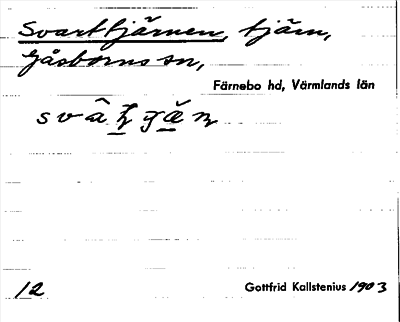 Svarttjärnen, tjärn,
Gåsborns sn,
Färnebo hd, Värmlands län
12
Gottfrid Kallstenius 1903